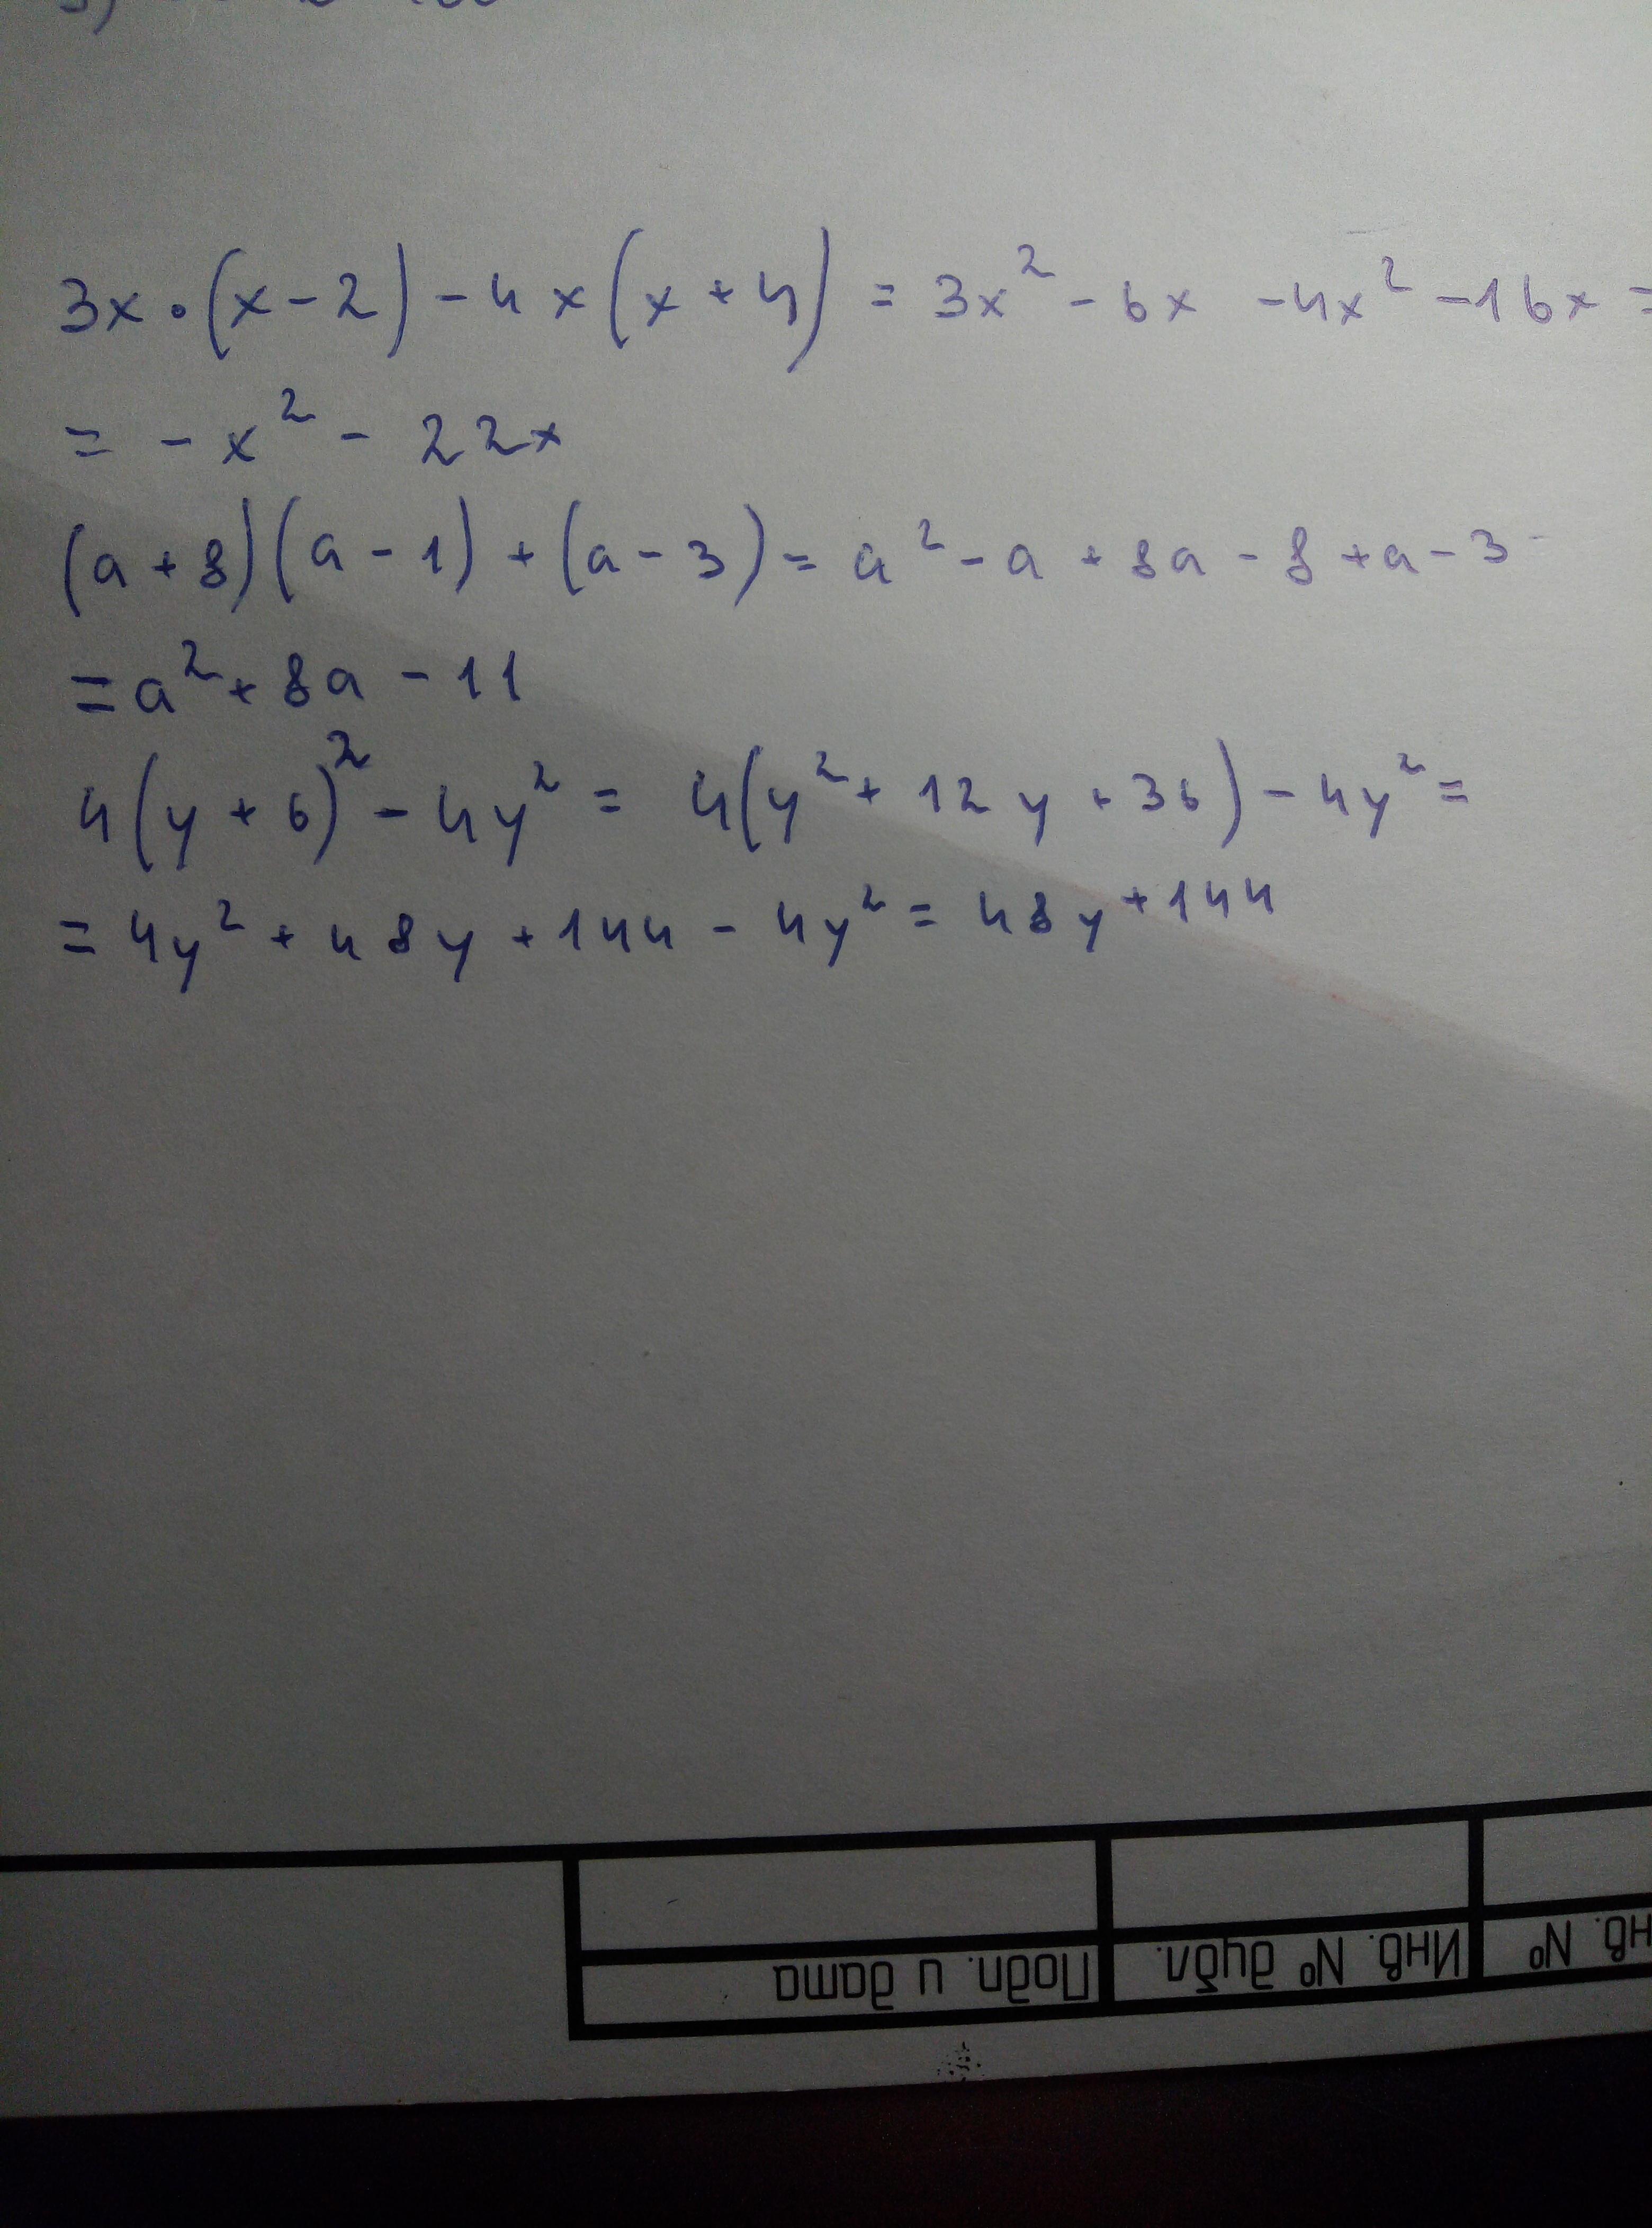 3x·(x-2)-4x(x+4) = 3x²-6x -4x²-16x =
= -x² - 22x
(a+8)(a-1)+(a-3)= a²-a+8a-8+a-3
=a²+8a-11
4(y+6)²-4y² = 4(y²+12y+36)-4y²=
=4y²+48y+144-4y²=48y+144
Подп. и дата
Инв. № дубл.
нв. №